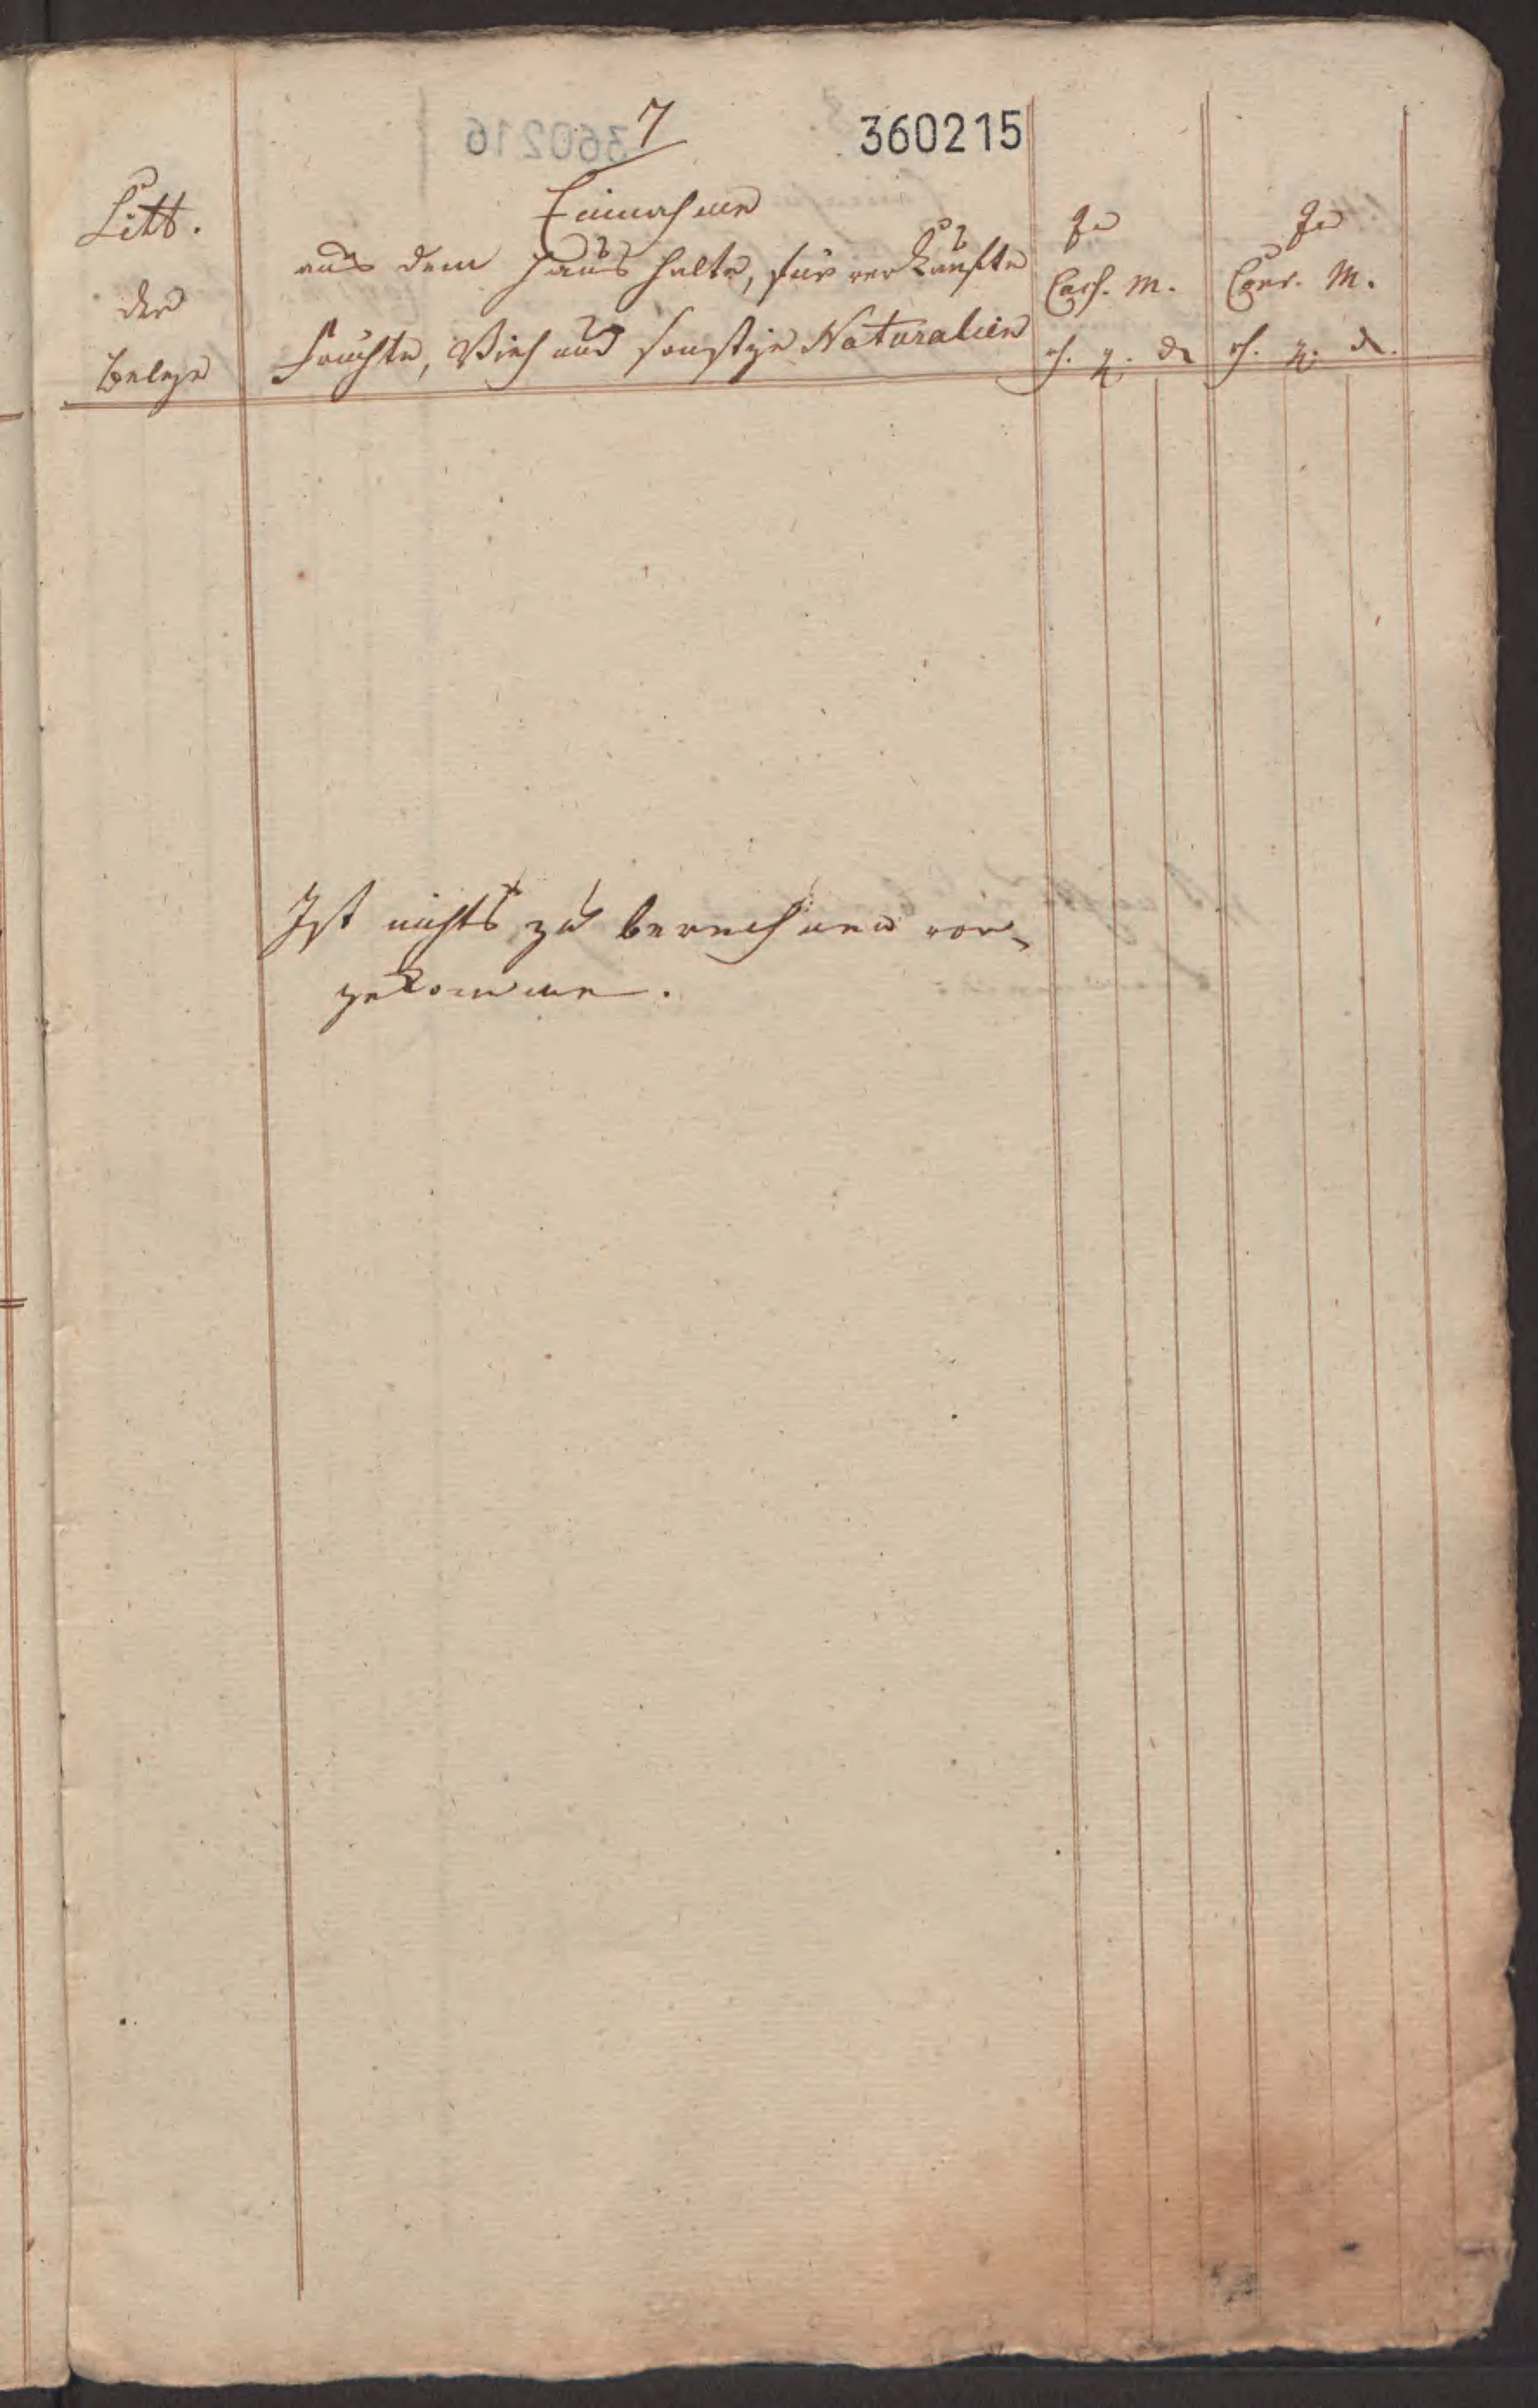 7
360215
Litt.
der
Belege
Einnahme
aus dem Haushalte, für verkaufte
Früchte, Vieh und sonstige Naturalien
In
Cass. M.
In
Conv. M.
Ist nichts zu berechnen vor-
gekommen.